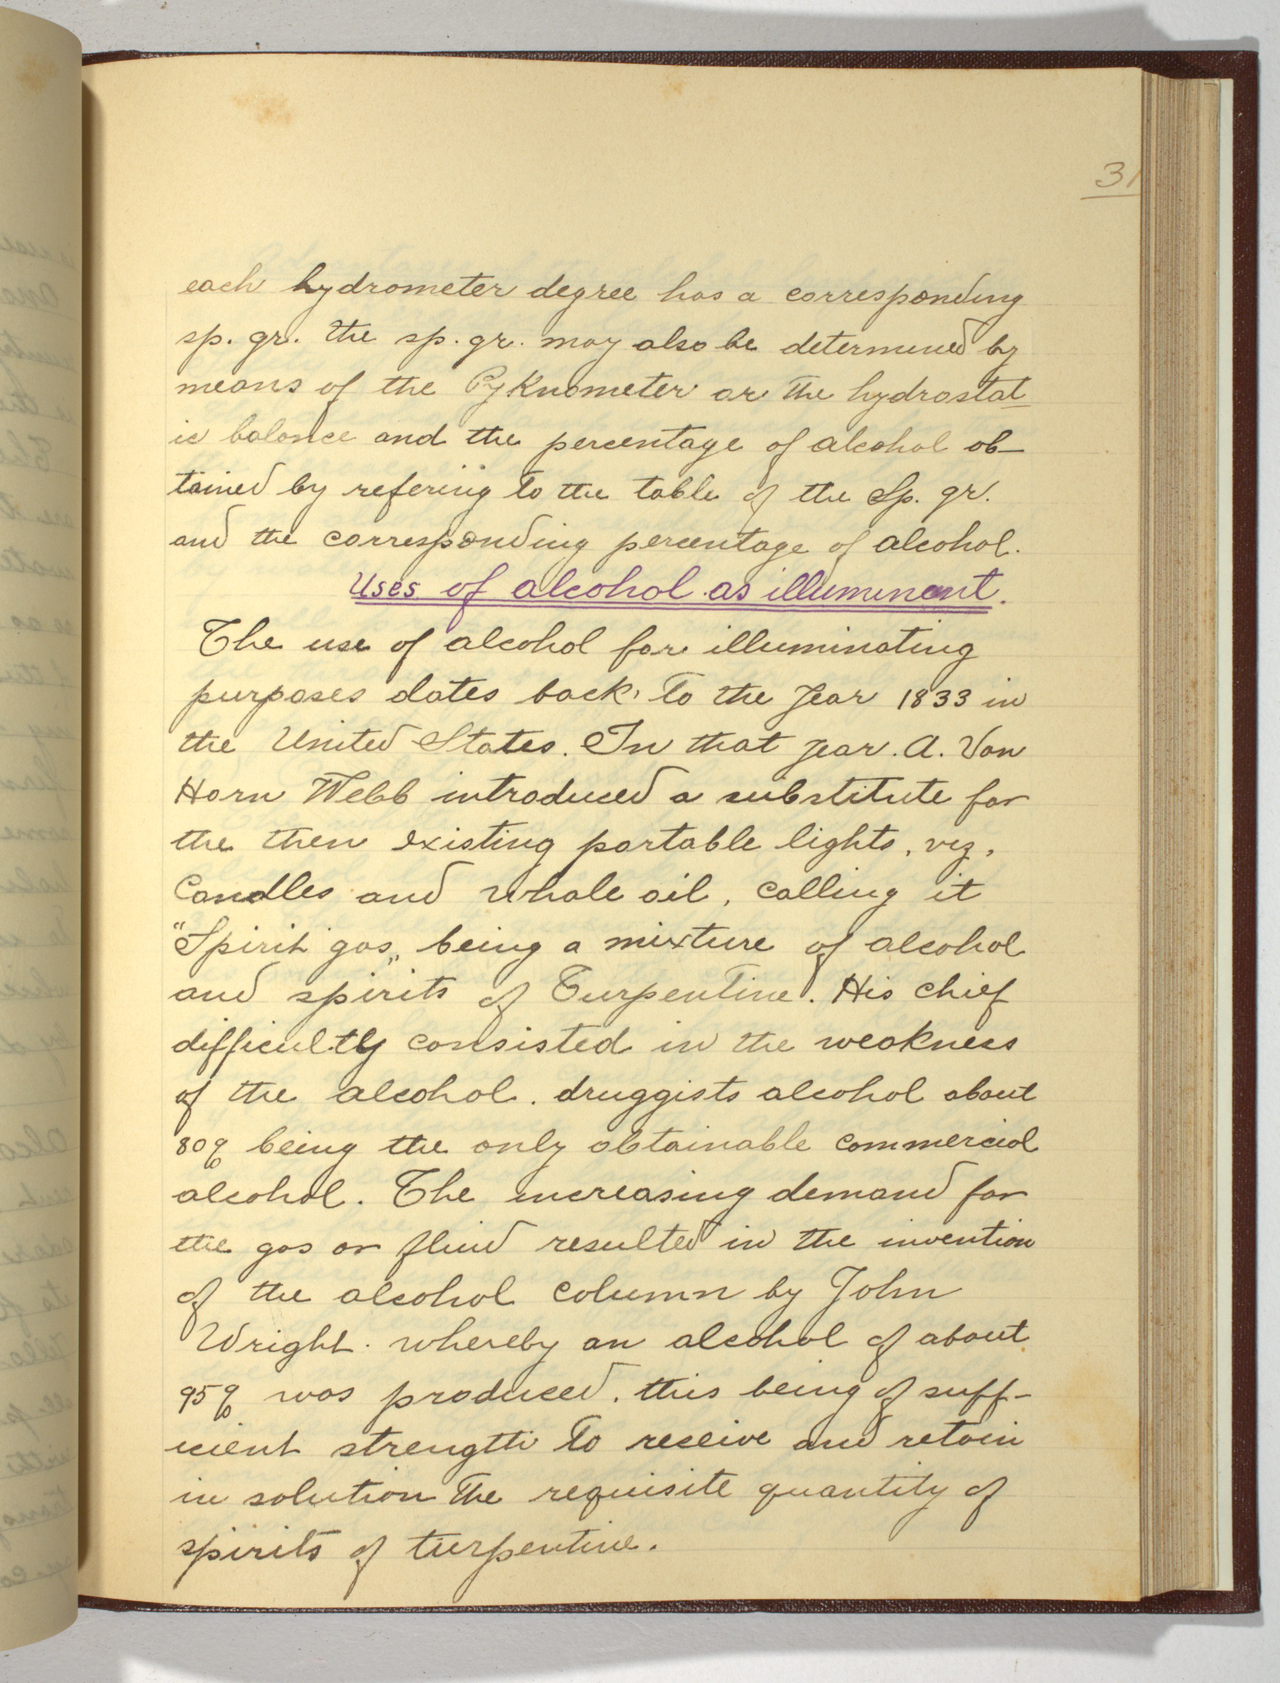 31
each hydrometer degree has a corresponding
sp. gr. the sp. gr. may also be determined by
means of the Pyknometer or the hydrostat-
ic balance and the percentage of alcohol ob-
tained by refering to the table of the Sp. gr.
and the corresponding percentage of alcohol.
Uses of alcohol as illuminant.
The use of alcohol for illuminating
purposes dates back to the year 1833 in
the United States. In that year. A. Van
Horn Webb introduced a substitute for
the then existing portable lights, viz,
Candles and whale oil, calling it
"Spirit gas„ being a mixture of alcohol
and spirits of Turpentine. His chief
difficultty consisted in the weakness
of the alcohol. druggists alcohol about
80% being the only obtainable commercial
alcohol. The increasing demand for
the gas or fluid resulted in the invention
of the alcohol column by John
Wright. whereby an alcohol of about
95% was produced. this being of suff-
icient strength to receive and retain
in solution the requisite quantity of
spirits of turpentine.